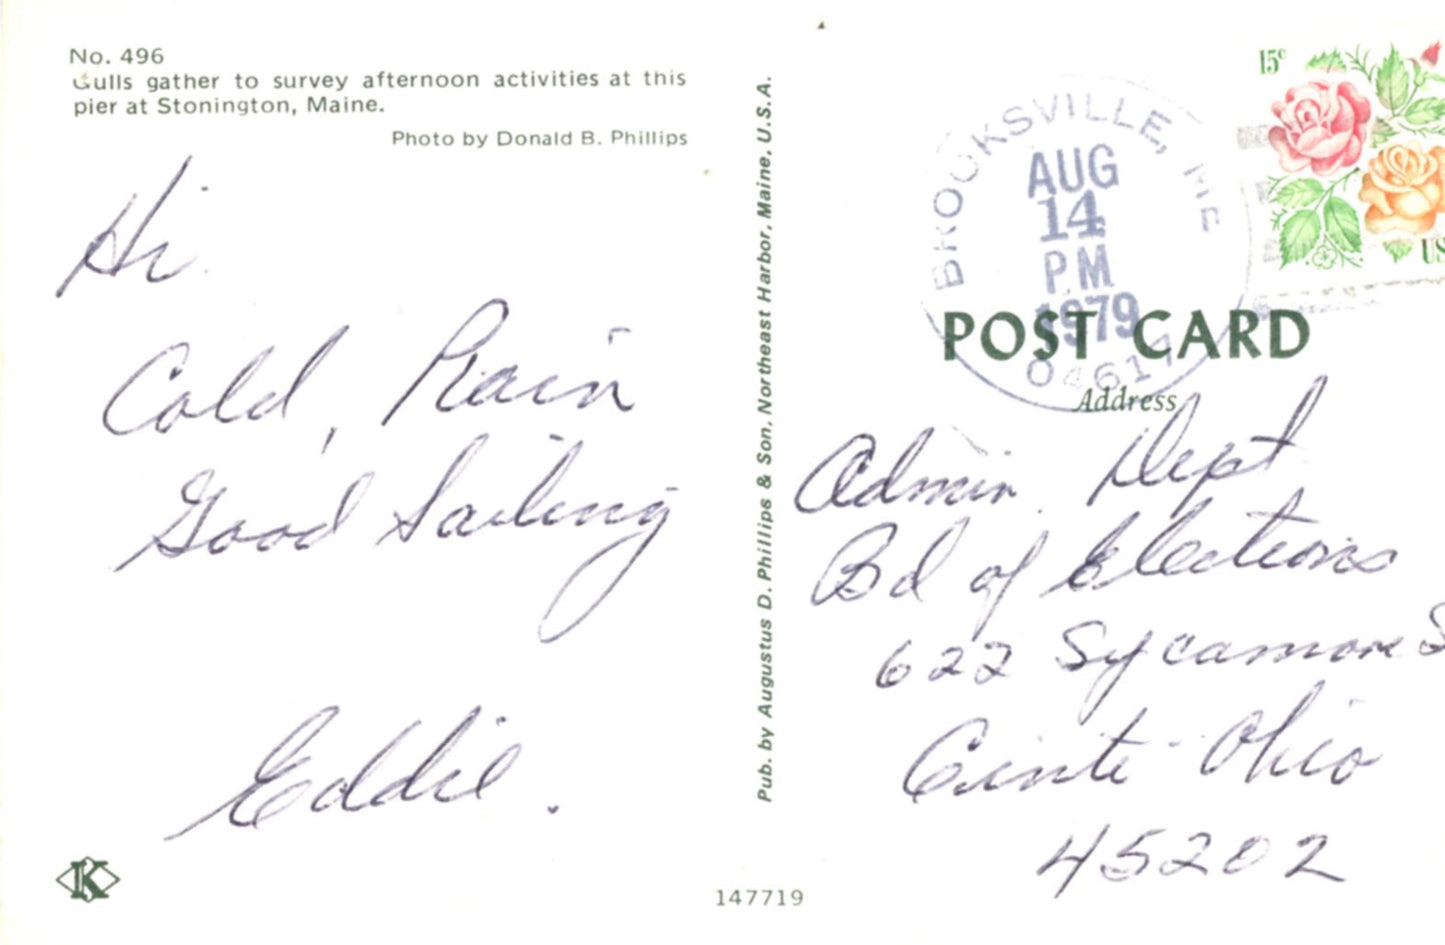 No. 496
Gulls gather to survey afternoon activities at this
pier at Stonington, Maine.
Photo by Donald B. Phillips
Hi
Cold, Rain
Good Sailing
Eddie.
K
147719
Pub. by Augustus D. Phillips & Son, Northeast Harbor, Maine, U.S.A.
15c
US
BROOKSVILLE, ME
AUG
14
PM
1979
04617
POST CARD
Address
Admin. Dept
Bd of Elections
622 Sycamore S
Cinti Ohio
45202